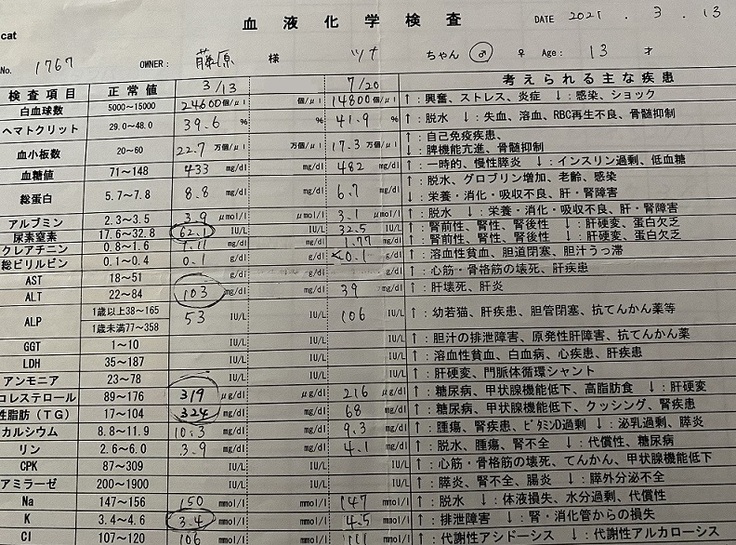 血液化学検査 DATE 2021 . 3 . 13
cat
No. 1767 OWNER: 藤原 様 ツナ ちゃん ♂ ♀ Age: 13 才
検査項目 正常値 3/13 7/20 考えられる主な疾患
白血球数 5000~15000 24600個/μl 個/μl 14800個/μl ↑:興奮、ストレス、炎症 ↓:感染、ショック
ヘマトクリット 29.0~48.0 39.6 % % 41.9 % ↑:脱水 ↓:失血、溶血、RBC再生不良、骨髄抑制
血小板数 20~60 22.7 万個/μl 万個/μl 17.3 万個/μl ↑:自己免疫疾患、
↓:脾機能亢進、骨髄抑制
血糖値 71~148 433 mg/dl mg/dl 482 mg/dl ↑:一時的、慢性膵炎 ↓:インスリン過剰、低血糖
総蛋白 5.7~7.8 8.8 mg/dl mg/dl 6.7 mg/dl ↑:脱水、グロブリン増加、老齢、感染
↓:栄養・消化・吸収不良、肝・腎障害
アルブミン 2.3~3.5 3.9 μmol/l μmol/l 3.1 μmol/l ↑:脱水 ↓:栄養・消化・吸収不良、肝・腎障害
尿素窒素 17.6~32.8 62.1 IU/L IU/L 32.5 IU/L ↑:腎前性、腎性、腎後性 ↓:肝硬変、蛋白欠乏
クレアチニン 0.8~1.6 1.11 mg/dl mg/dl 1.77 mg/dl ↑:腎前性、腎性、腎後性 ↓:肝硬変、蛋白欠乏
総ビリルビン 0.1~0.4 0.1 g/dl g/dl <0.1 g/dl ↑:溶血性貧血、胆道閉塞、胆汁うっ滞
AST 18~51 g/dl g/dl g/dl ↑:心筋・骨格筋の壊死、肝疾患
ALT 22~84 103 mg/dl mg/dl 39 mg/dl ↑:肝壊死、肝炎
ALP 1歳以上38~165 53 IU/L IU/L 106 IU/L ↑:幼若猫、肝疾患、胆管閉塞、抗てんかん薬等
1歳未満77~358
GGT 1~10 IU/L IU/L IU/L ↑:胆汁の排泄障害、原発性肝障害、抗てんかん薬
LDH 35~187 IU/L IU/L IU/L ↑:溶血性貧血、白血病、心疾患、肝疾患
アンモニア 23~78 IU/L IU/L IU/L ↑:肝硬変、門脈体循環シャント
コレステロール 89~176 319 μg/dl μg/dl 216 μg/dl ↑:糖尿病、甲状腺機能低下、高脂肪食 ↓:肝硬変
性脂肪(TG) 17~104 324 mg/dl mg/dl 68 mg/dl ↑:糖尿病、甲状腺機能低下、クッシング、腎疾患
カルシウム 8.8~11.9 10.3 mg/dl mg/dl 9.3 mg/dl ↑:腫瘍、腎疾患、ビタミンD過剰 ↓:泌乳過剰、膵炎
リン 2.6~6.0 3.9 mg/dl mg/dl 4.1 mg/dl ↑:脱水、腫瘍、腎不全 ↓:代償性、糖尿病
CPK 87~309 IU/L IU/L IU/L ↑:心筋・骨格筋の壊死、てんかん、甲状腺機能低下
アミラーゼ 200~1900 IU/L IU/L IU/L ↑:膵炎、腎不全、腸炎 ↓:膵外分泌不全
Na 147~156 150 mmol/l mmol/l 147 mmol/l ↑:脱水 ↓:体液損失、水分過剰、代償性
K 3.4~4.6 3.4 mmol/l mmol/l 4.5 mmol/l ↑:排泄障害 ↓:腎・消化管からの損失
Cl 107~120 106 mmol/l mmol/l 111 mmol/l ↑:代謝性アシドーシス ↓:代謝性アルカローシス